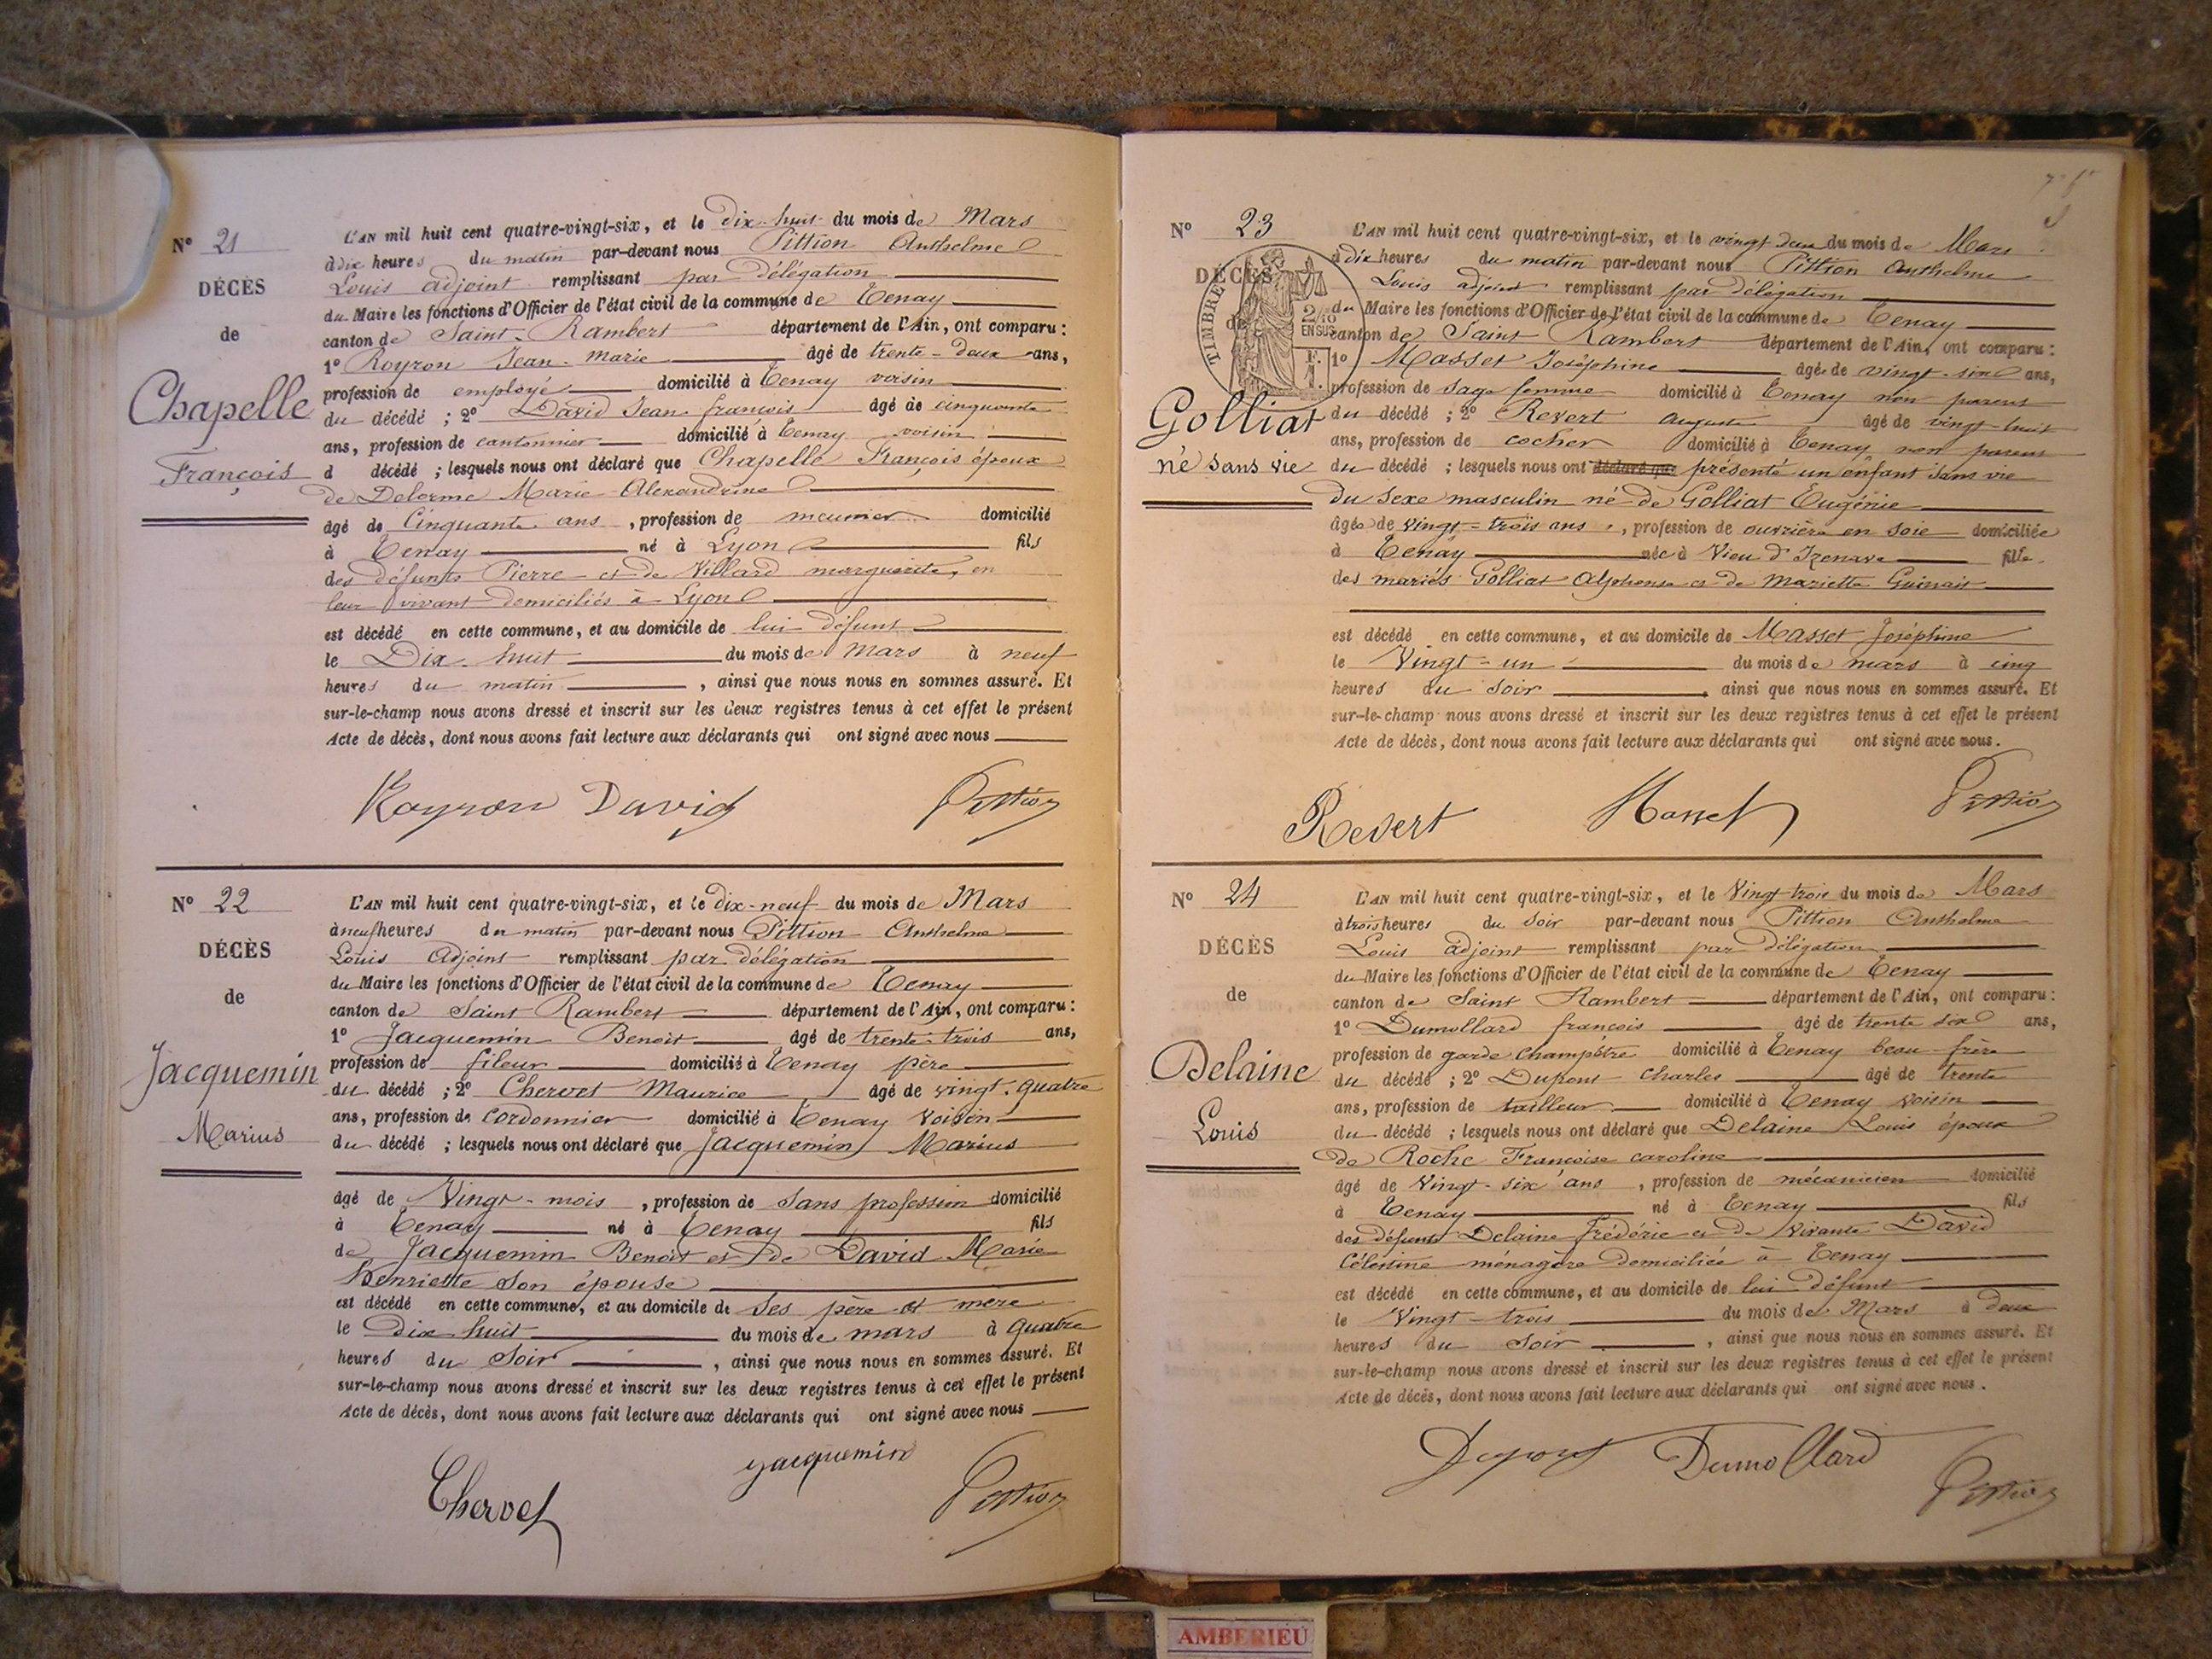 N° 21
DÉCÈS
de
Chapelle
François
L'AN mil huit cent quatre-vingt-six, et le Dix-huit du mois de Mars
à dix heures du matin par-devant nous Pittion Anthelme
Louis adjoint remplissant par délégation
du Maire les fonctions d'Officier de l'état civil de la commune de Tenay
canton de Saint-Rambert département de l'Ain, ont comparu :
1° Royron Jean-Marie âgé de trente-deux ans,
profession de employé domicilié à Tenay voisin
du décédé ; 2° David Jean françois âgé de cinquante
ans, profession de cantonnier domicilié à Tenay voisin
d décédé ; lesquels nous ont déclaré que Chapelle François époux
de Delorme Marie Alexandrine
âgé de Cinquante ans , profession de meunier domicilié
à Tenay né à Lyon fils
des défunts Pierre et de Villard marguerite, en
leur vivant domiciliés à Lyon
est décédé en cette commune, et au domicile de lui défunt
le Dix-huit du mois de Mars à neuf
heures du matin , ainsi que nous nous en sommes assuré. Et
sur-le-champ nous avons dressé et inscrit sur les deux registres tenus à cet effet le présent
Acte de décès, dont nous avons fait lecture aux déclarants qui ont signé avec nous
Royron David Pittion
N° 22
DÉCÈS
de
Jacquemin
Marius
L'AN mil huit cent quatre-vingt-six, et le dix-neuf du mois de Mars
à neuf heures du matin par-devant nous Pittion Anthelme
Louis Adjoint remplissant par délégation
du Maire les fonctions d'Officier de l'état civil de la commune de Tenay
canton de Saint Rambert département de l'Ain, ont comparu :
1° Jacquemin Benoit âgé de trente-trois ans,
profession de fileur domicilié à Tenay père
du décédé ; 2° Chervet Maurice âgé de vingt-quatre
ans, profession de cordonnier domicilié à Tenay voisin
du décédé ; lesquels nous ont déclaré que Jacquemin Marius
âgé de Vingt-mois , profession de sans profession domicilié
à Tenay né à Tenay fils
de Jacquemin Benoit et de David Marie
Henriette son épouse
est décédé en cette commune, et au domicile de ses père et mere
le Dix huit du mois de mars à quatre
heures du Soir , ainsi que nous nous en sommes assuré. Et
sur-le-champ nous avons dressé et inscrit sur les deux registres tenus à cet effet le présent
Acte de décès, dont nous avons fait lecture aux déclarants qui ont signé avec nous
Chervet jacquemin Pittion
75
N° 23
DÉCÈS
de
TIMBRE
2/10
EN SUS
Golliat
né sans vie
L'AN mil huit cent quatre-vingt-six, et le vingt deux du mois de Mars
à dix heures du matin par-devant nous Pittion Anthelme
Louis adjoint remplissant par délégation
du Maire les fonctions d'Officier de l'état civil de la commune de Tenay
canton de Saint Rambert département de l'Ain, ont comparu :
1° Masset Joséphine âgée de vingt-six ans,
profession de sage femme domicilié à Tenay non parent
du décédé ; 2° Revert auguste âgé de vingt-huit
ans, profession de cocher domicilié à Tenay non parent
du décédé ; lesquels nous ont déclaré que présenté un enfant sans vie
du sexe masculin né de Golliat Eugénie
âgée de vingt-trois ans , profession de ouvrière en soie domiciliée
à Tenay née à Vieu d'Izenave fille
des mariés Golliat Alphonse et de Mariette Guinait
est décédé en cette commune, et au domicile de Masset Joséphine
le Vingt-un du mois de mars à cinq
heures du soir , ainsi que nous nous en sommes assuré. Et
sur-le-champ nous avons dressé et inscrit sur les deux registres tenus à cet effet le présent
Acte de décès, dont nous avons fait lecture aux déclarants qui ont signé avec nous.
Revert Masset Pittion
N° 24
DÉCÈS
de
Delaine
Louis
L'AN mil huit cent quatre-vingt-six, et le Vingt-trois du mois de Mars
à trois heures du soir par-devant nous Pittion Anthelme
Louis adjoint remplissant par délégation
du Maire les fonctions d'Officier de l'état civil de la commune de Tenay
canton de Saint Rambert département de l'Ain, ont comparu :
1° Dumollard françois âgé de trente six ans,
profession de garde champêtre domicilié à Tenay beau-frère
du décédé ; 2° Dupont Charles âgé de trente
ans, profession de tailleur domicilié à Tenay voisin
du décédé ; lesquels nous ont déclaré que Delaine Louis époux
de Roche Françoise caroline
âgé de Vingt-six ans , profession de mécanicien domicilié
à Tenay né à Tenay fils
des défunt Delaine frédéric et de vivante David
Célestine ménagère domiciliée à Tenay
est décédé en cette commune, et au domicile de lui défunt
le Vingt-trois du mois de Mars à deux
heures du soir , ainsi que nous nous en sommes assuré. Et
sur-le-champ nous avons dressé et inscrit sur les deux registres tenus à cet effet le présent
Acte de décès, dont nous avons fait lecture aux déclarants qui ont signé avec nous.
Dupont Dumollard Pittion
AMBERIEU